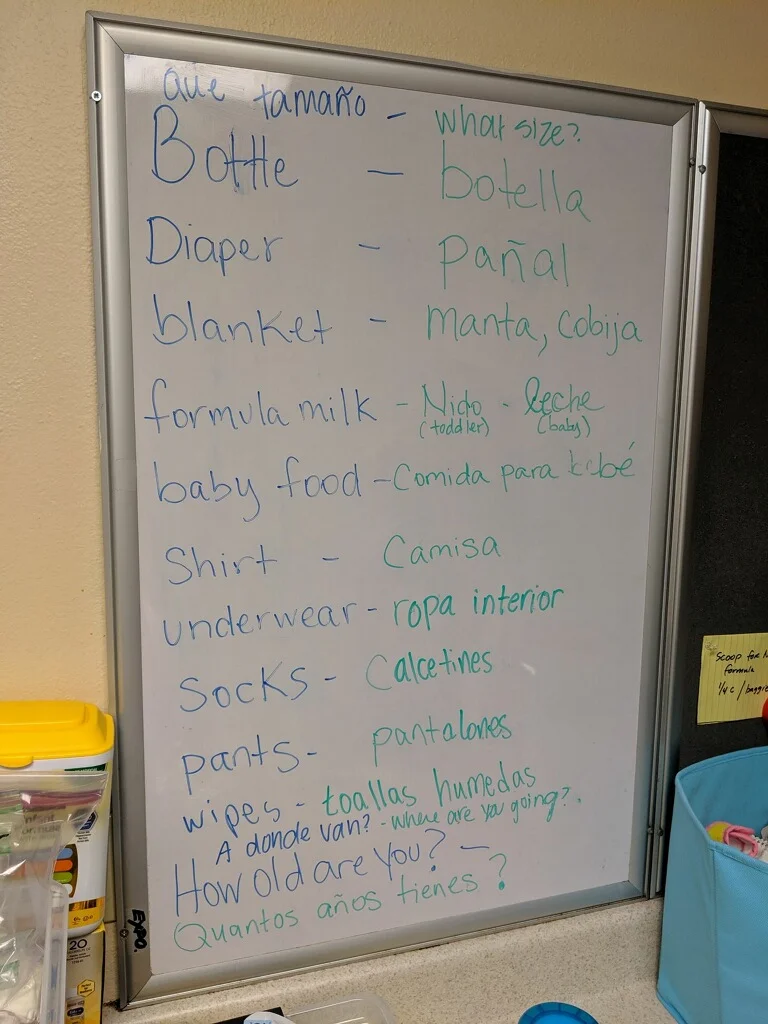 que tamaño - what size?
Bottle - botella
Diaper - pañal
blanket - manta, cobija
formula milk - Nido - leche
(toddler) (baby)
baby food - Comida para bebé
Shirt - Camisa
underwear - ropa interior
Socks - Calcetines
pants - pantalones
wipes - toallas humedas
A donde van? - where are you going?
How old are you? -
Quantos años tienes?
EXPO.
scoop for
formula
1/4 c /baggie
20